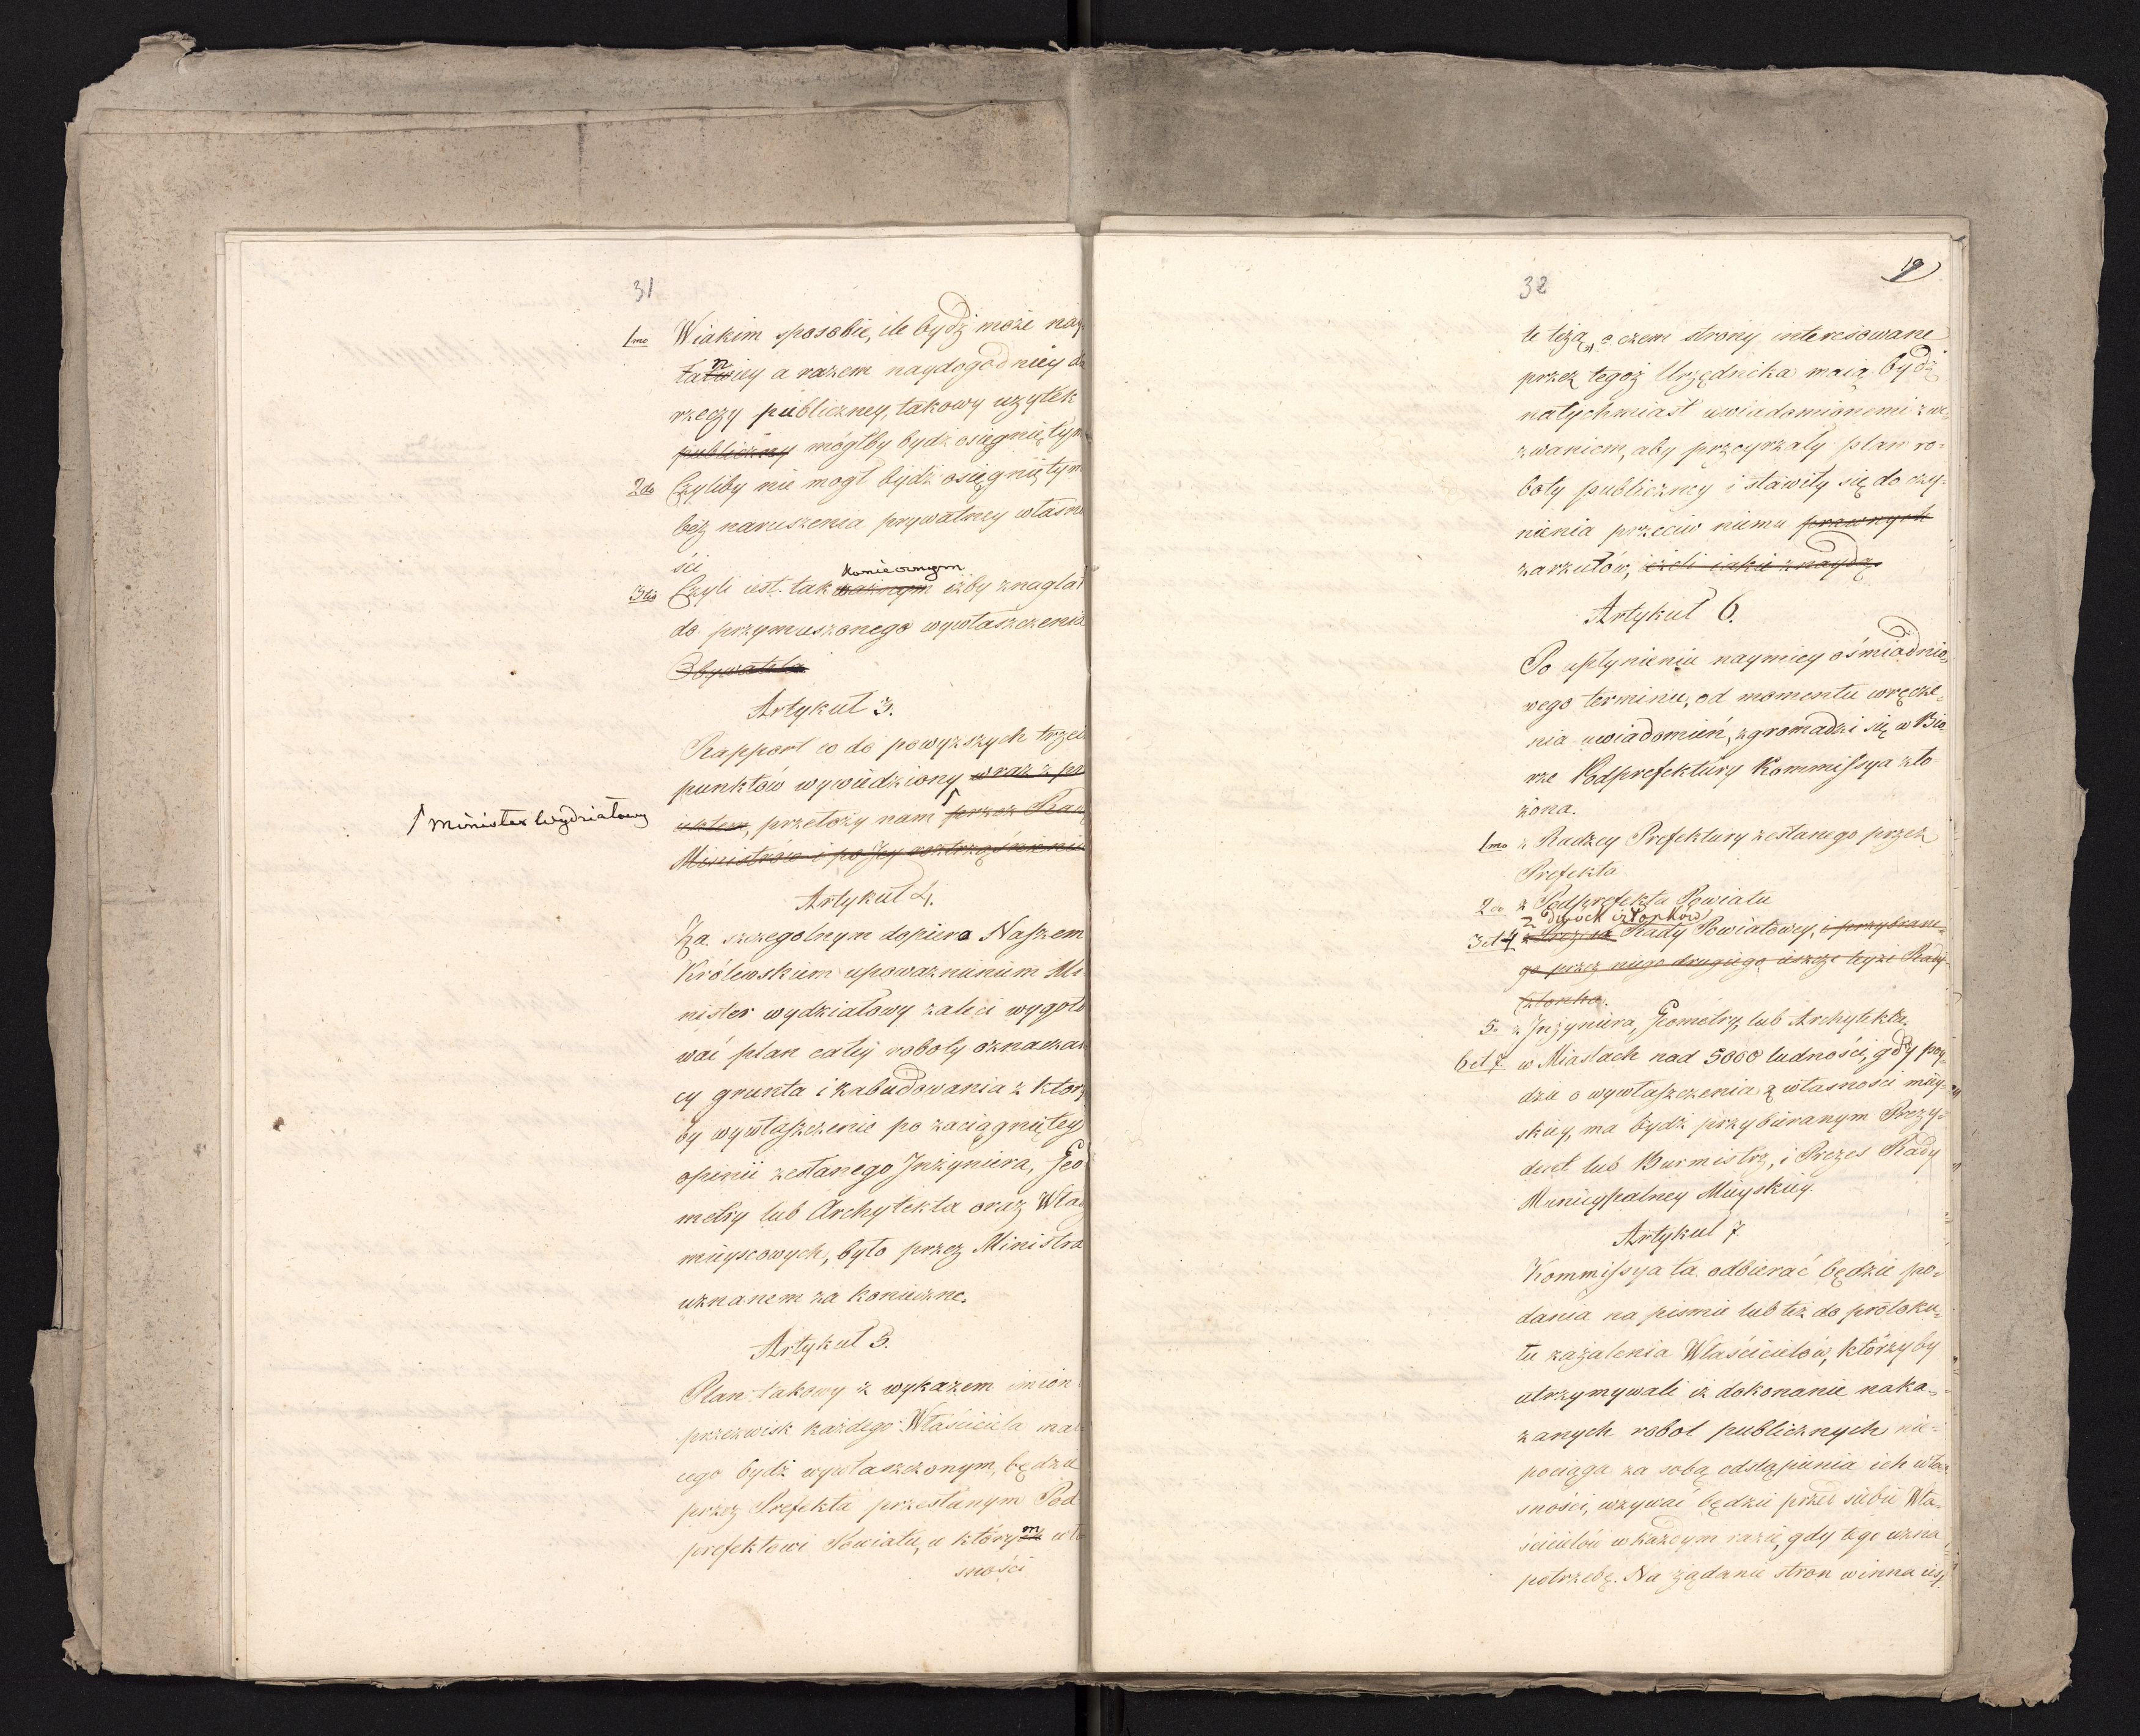 31
1mo Wiakim sposobie, ile bydź może nay
tanniey a razem naydogodniey da
rzeczy publiczney, takowy uzytek
publiczny mógłby bydź osiegniętym
2do Czyliby nie mogł bydź osięgniętym
bez naruszenia prywatney własno
ści
koniecznym
3tio Czyli iest tak ważnym iżby znaglał
do przymuszonego wywłaszczenia
Obywatela
Artykuł 3.
Rapport co do powyższych trzech
punktów wywiedziony wraz z pro
iektem, przełoży nam przez Radę
Minister Wydziałowy
Ministrów i po Jey roztrząśnieniu
Artykuł 4.
Za szczegolnym dopiero Naszem
Królewskiem upoważnieniem Mi
nister wydziałowy zaleci wygoto
wać plan całey roboty oznaczaią
cy grunta i zabudowania z ktory
by wywłaszczenie po zaciągniętey
opinii zesłanego Inżyniera, Geo
metry lub Architekta oraz Władz
mieyscowych, było przez Ministra
uznanem za konieczne.
Artykuł 5.
Plan takowy z wykazem imion
przezwisk każdego Właściciela maią
cego bydź wywłaszczonym, będzie
przez Prefekta przesłanym Pod
prefektowi Powiatu, w którym wła
sności
32
19
te leżą, o czem strony interesowane
przez tegoż Urzędnika maią bydź
natychmiast uwiadomionemi z we
zwaniem, aby przeyrzały plan ro=
boty publiczney i stawiły się do czy=
nienia przeciw niemu prawnych
zarzutów, ieżeli iakie znaydą.
Artykuł 6.
Po upłynieniu naymniey ośmiodnio=
wego terminu, od momentu wręcze=
nia uwiadomień, zgromadzi się w Biu
rze Podprefektury Kommissya zło
żona.
1mo z Radzcy Prefektury zesłanego przez
Prefekta
2do z Podprefekta Powiatu
z dwóch członków
3et4 z Prezesa Rady Powiatowey, i przybrane=
go przez niego drugiego ieszcze teyże Rady
Członka.
5o z Inżyniera, Geometry, lub Archytekta.
6et7. w Miastach nad 5000 ludności, gdy poy=
dzie o wywłaszczenia z własności miey=
skiey, ma bydź przybieranym Prezy=
dent lub Burmistrz, i Prezes Rady
Municypalney Mieyskiey.
Artykuł 7
Kommissya ta odbierać będzie po=
dania na piśmie lub też do protoku=
łu zażalenia Właścicielów, którzyby
utrzymywali iż dokonanie naka=
zanych robot publicznych nie=
pociąga za sobą odstąpienia ich wła=
sności, wzywać będzie przed siebie Wła=
ścicielów w każdym razie, gdy tego uzna
potrzebę. Na żądanie stron winna iest